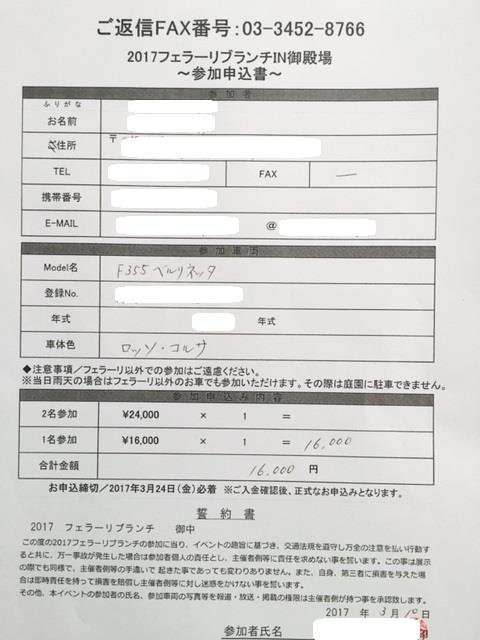 ご返信FAX番号：03-3452-8766
2017フェラーリブランチIN御殿場
～参加申込書～
参加者
ふりがな
お名前
ご住所 〒
TEL FAX —
携帯番号
E-MAIL @
参加車両
Model名 F355 ベルリネッタ
登録No.
年式 年式
車体色 ロッソ・コルサ
◆注意事項／フェラーリ以外での参加はご遠慮ください。
※当日雨天の場合はフェラーリ以外のお車でも参加いただけます。その際は庭園に駐車できません。
参加申込み内容
2名参加 ¥24,000 × 1 =
1名参加 ¥16,000 × 1 = 16,000
合計金額 16,000 円
お申込締切／2017年3月24日（金）必着 ※ご入金確認後、正式なお申込みとなります。
誓約書
2017 フェラーリブランチ 御中
この度の2017フェラーリブランチの参加に当り、イベントの趣旨に基づき、交通法規を遵守し万全の注意を払い行動す
ると共に、万一事故が発生した場合は参加者個人の責任とし、主催者側等に責任を求めない事を誓います。この事は展示
の際でも同様で、主催者側等の手違いで 起きた事であっても変わりありません。また、自身、第三者に損害を与えた場合
は即時責任を持って損害を賠償し主催者側等に対し迷惑をかけない事を誓います。
その他、本イベントの参加者の氏名、参加車両の写真等を報道・放送・掲載の権限は主催者側が持つ事を承認致します。
2017 年 3月10日
参加者氏名